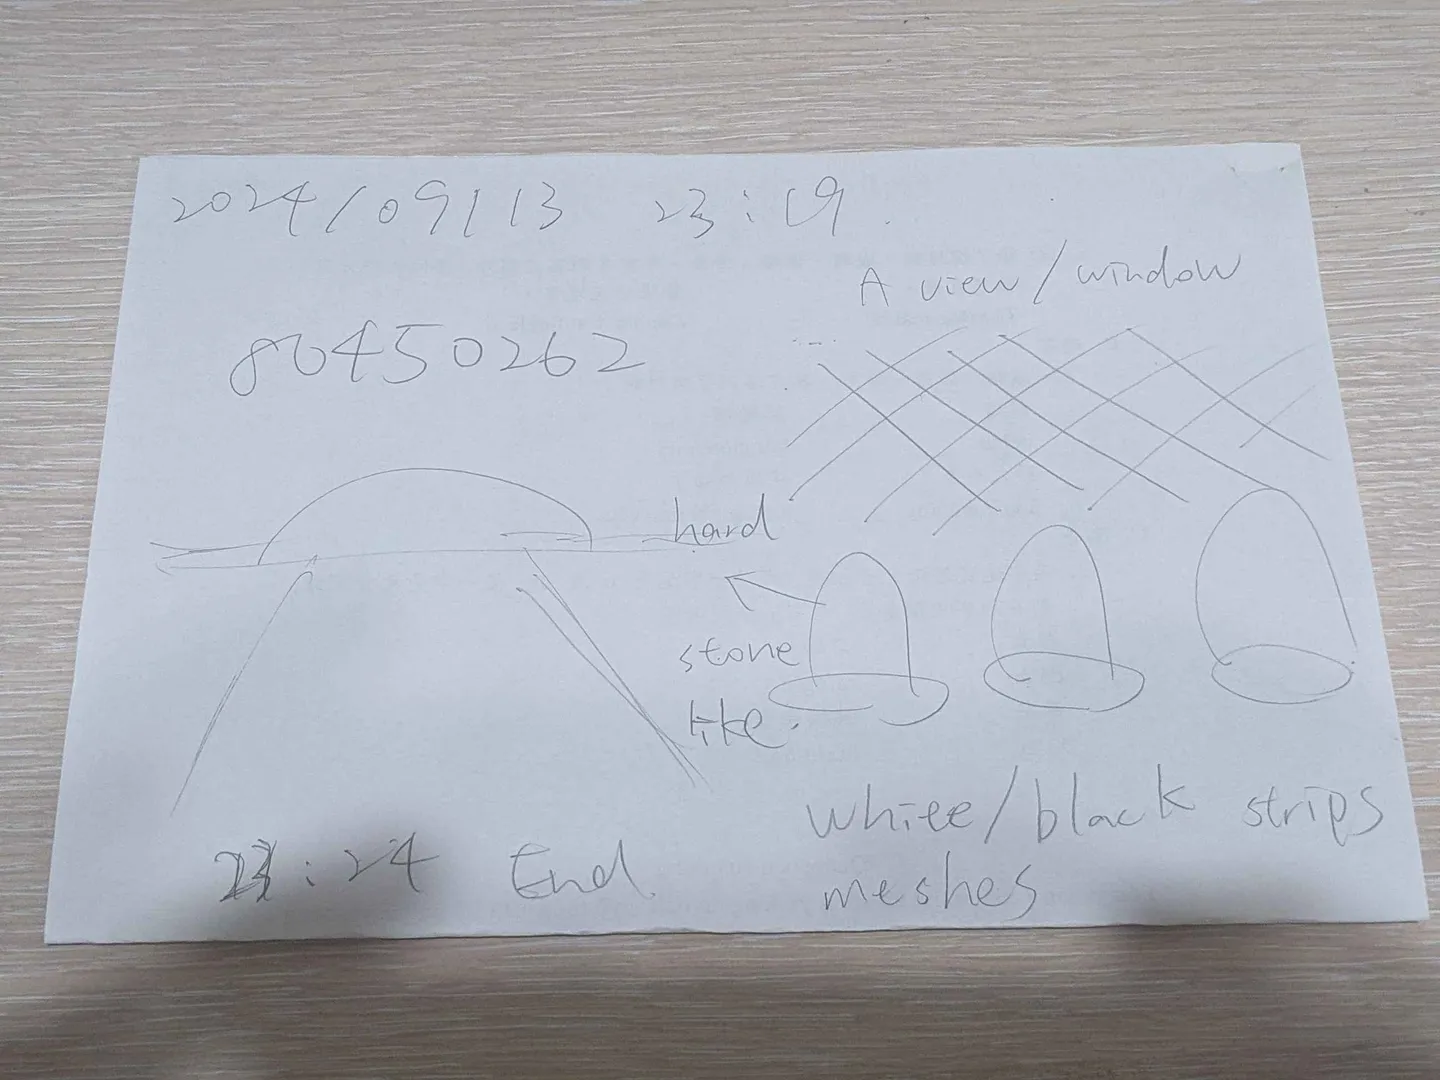 2024/09/13 23:19.
A view/window
80450262
hard
stone
like.
white/black strips
meshes
23:24 End